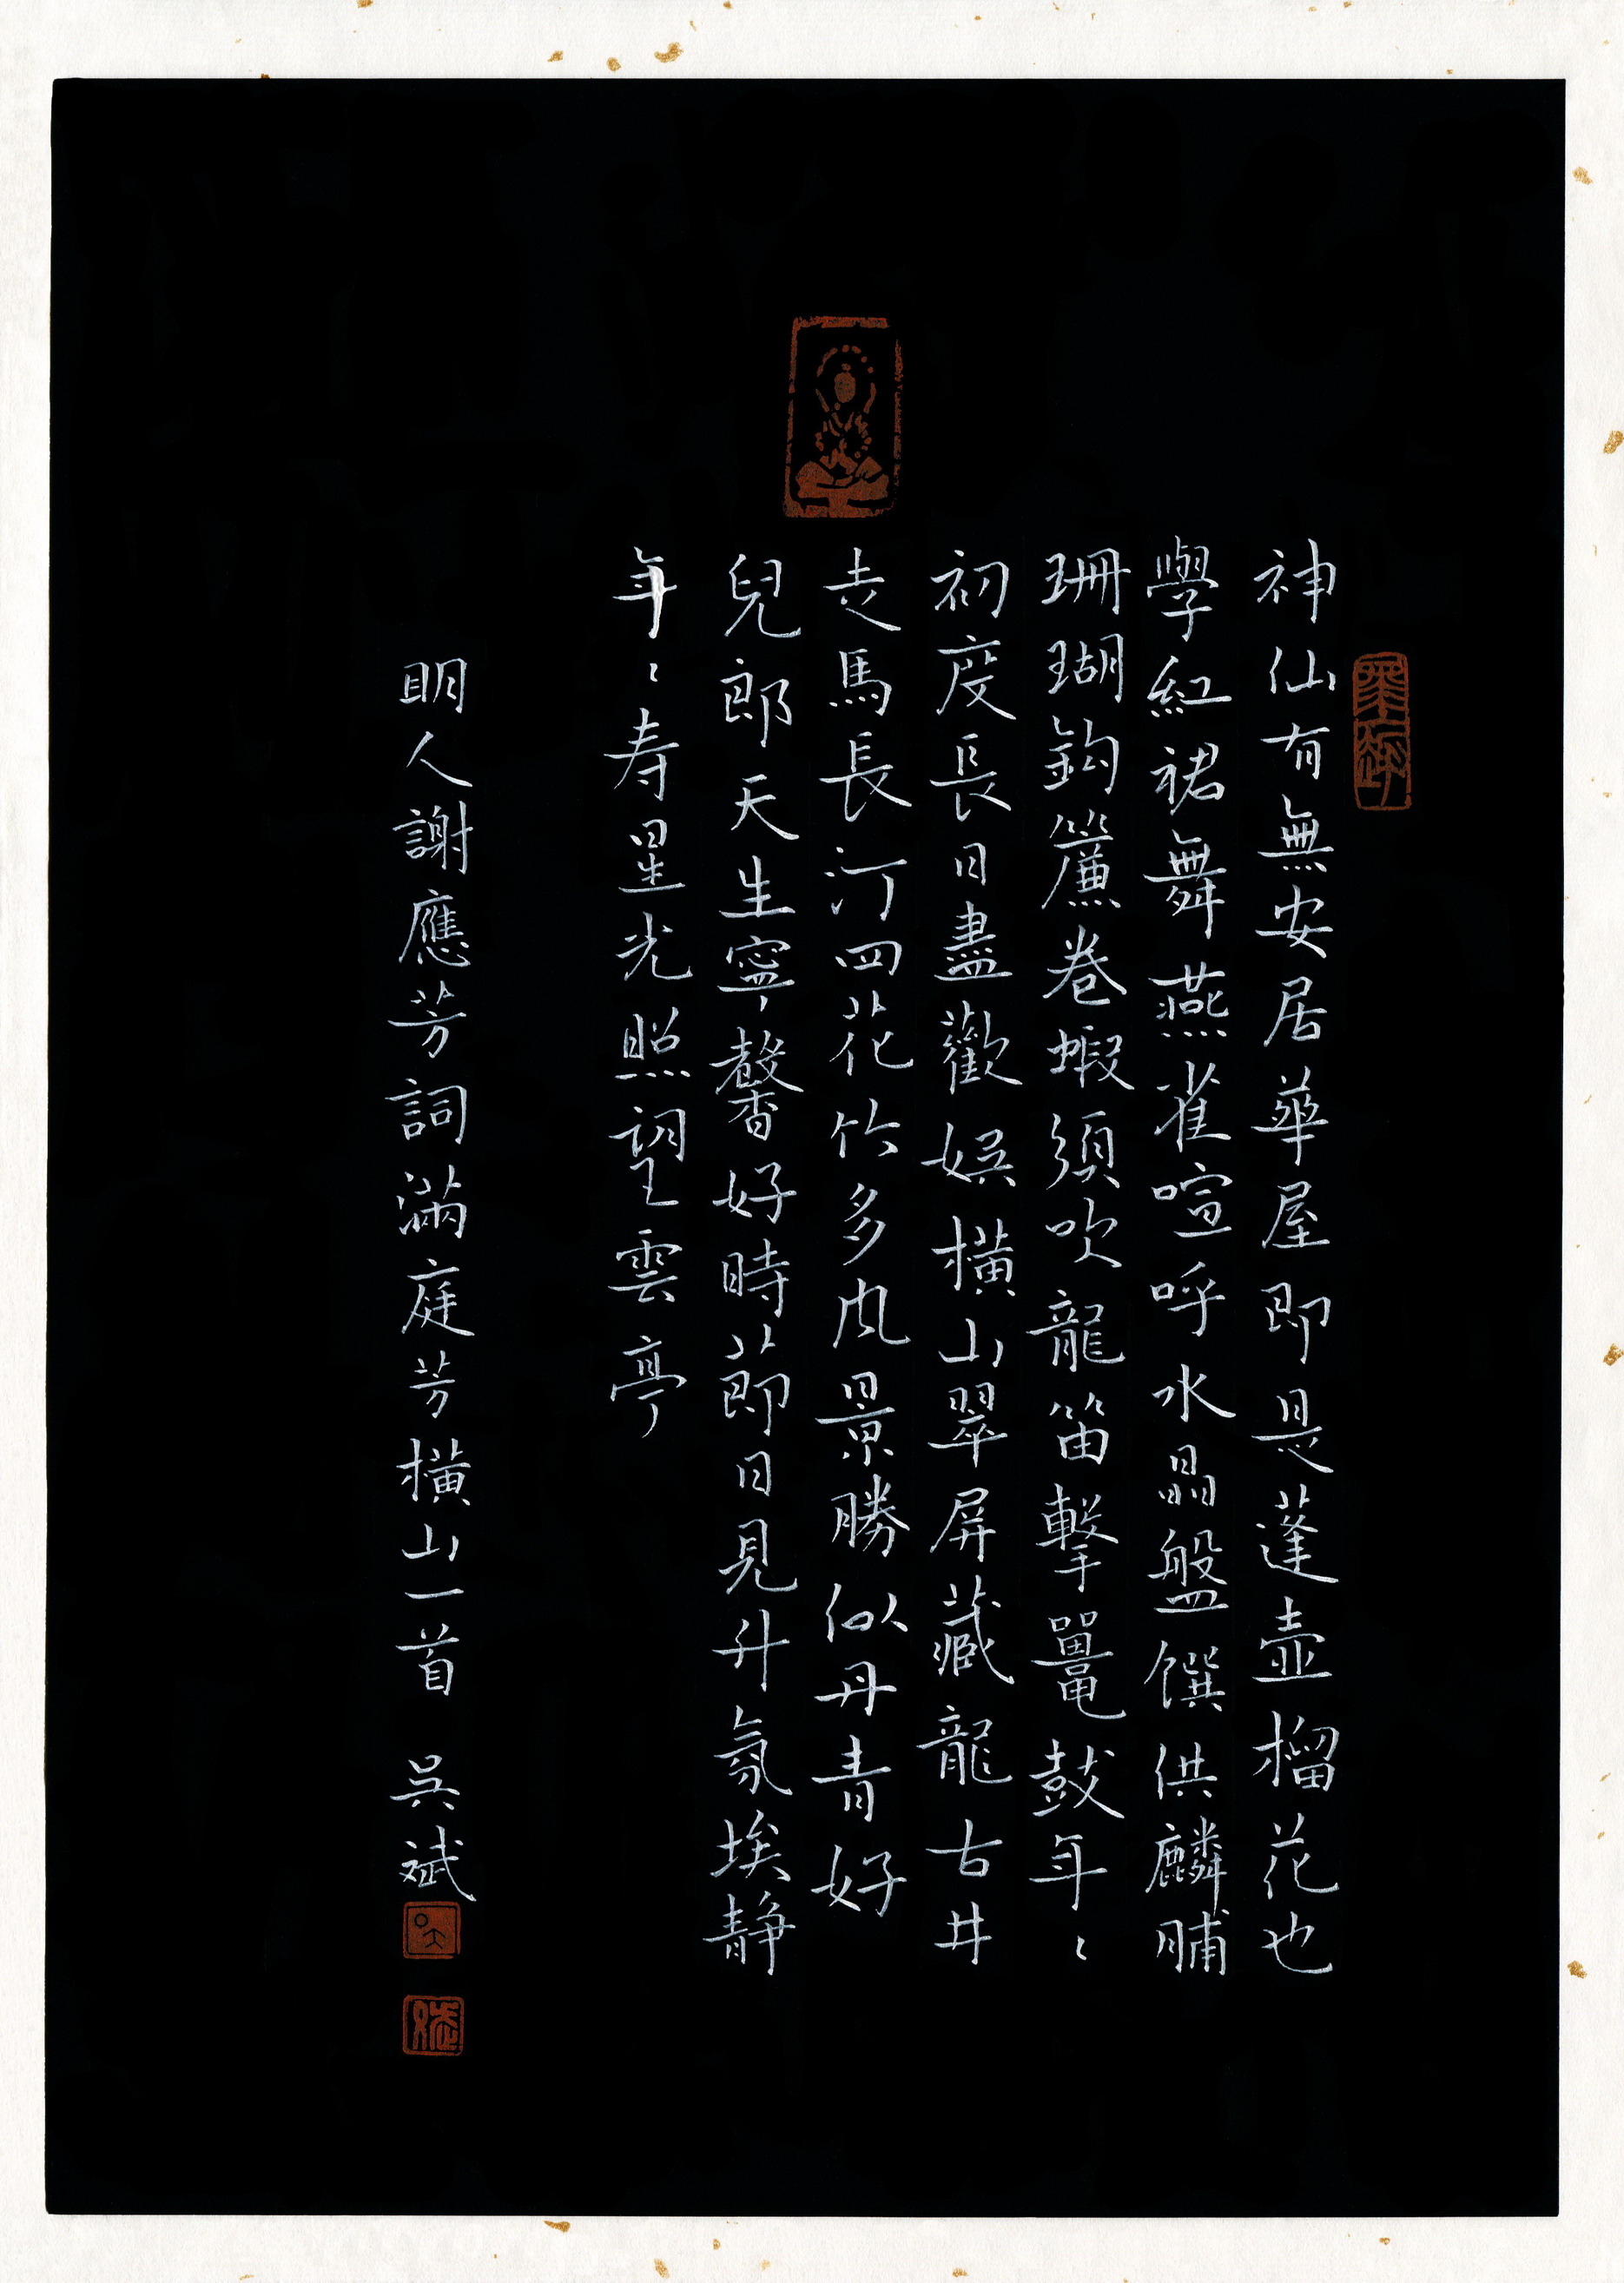 神仙有無安居華屋即是蓬壺榴花也
學紅裙舞燕雀喧呼水晶盤饌供麟脯
珊瑚鈎簾卷蝦須吹龍笛擊鼉鼓年〻
初度長日盡歡娛橫山翠屏藏龍古井
走馬長汀四花竹多風景勝似丹青好
兒郎天生寧馨好時節日見升氛埃靜
年〻壽星光照望雲亭
明人謝應芳詞滿庭芳橫山一首 吳斌